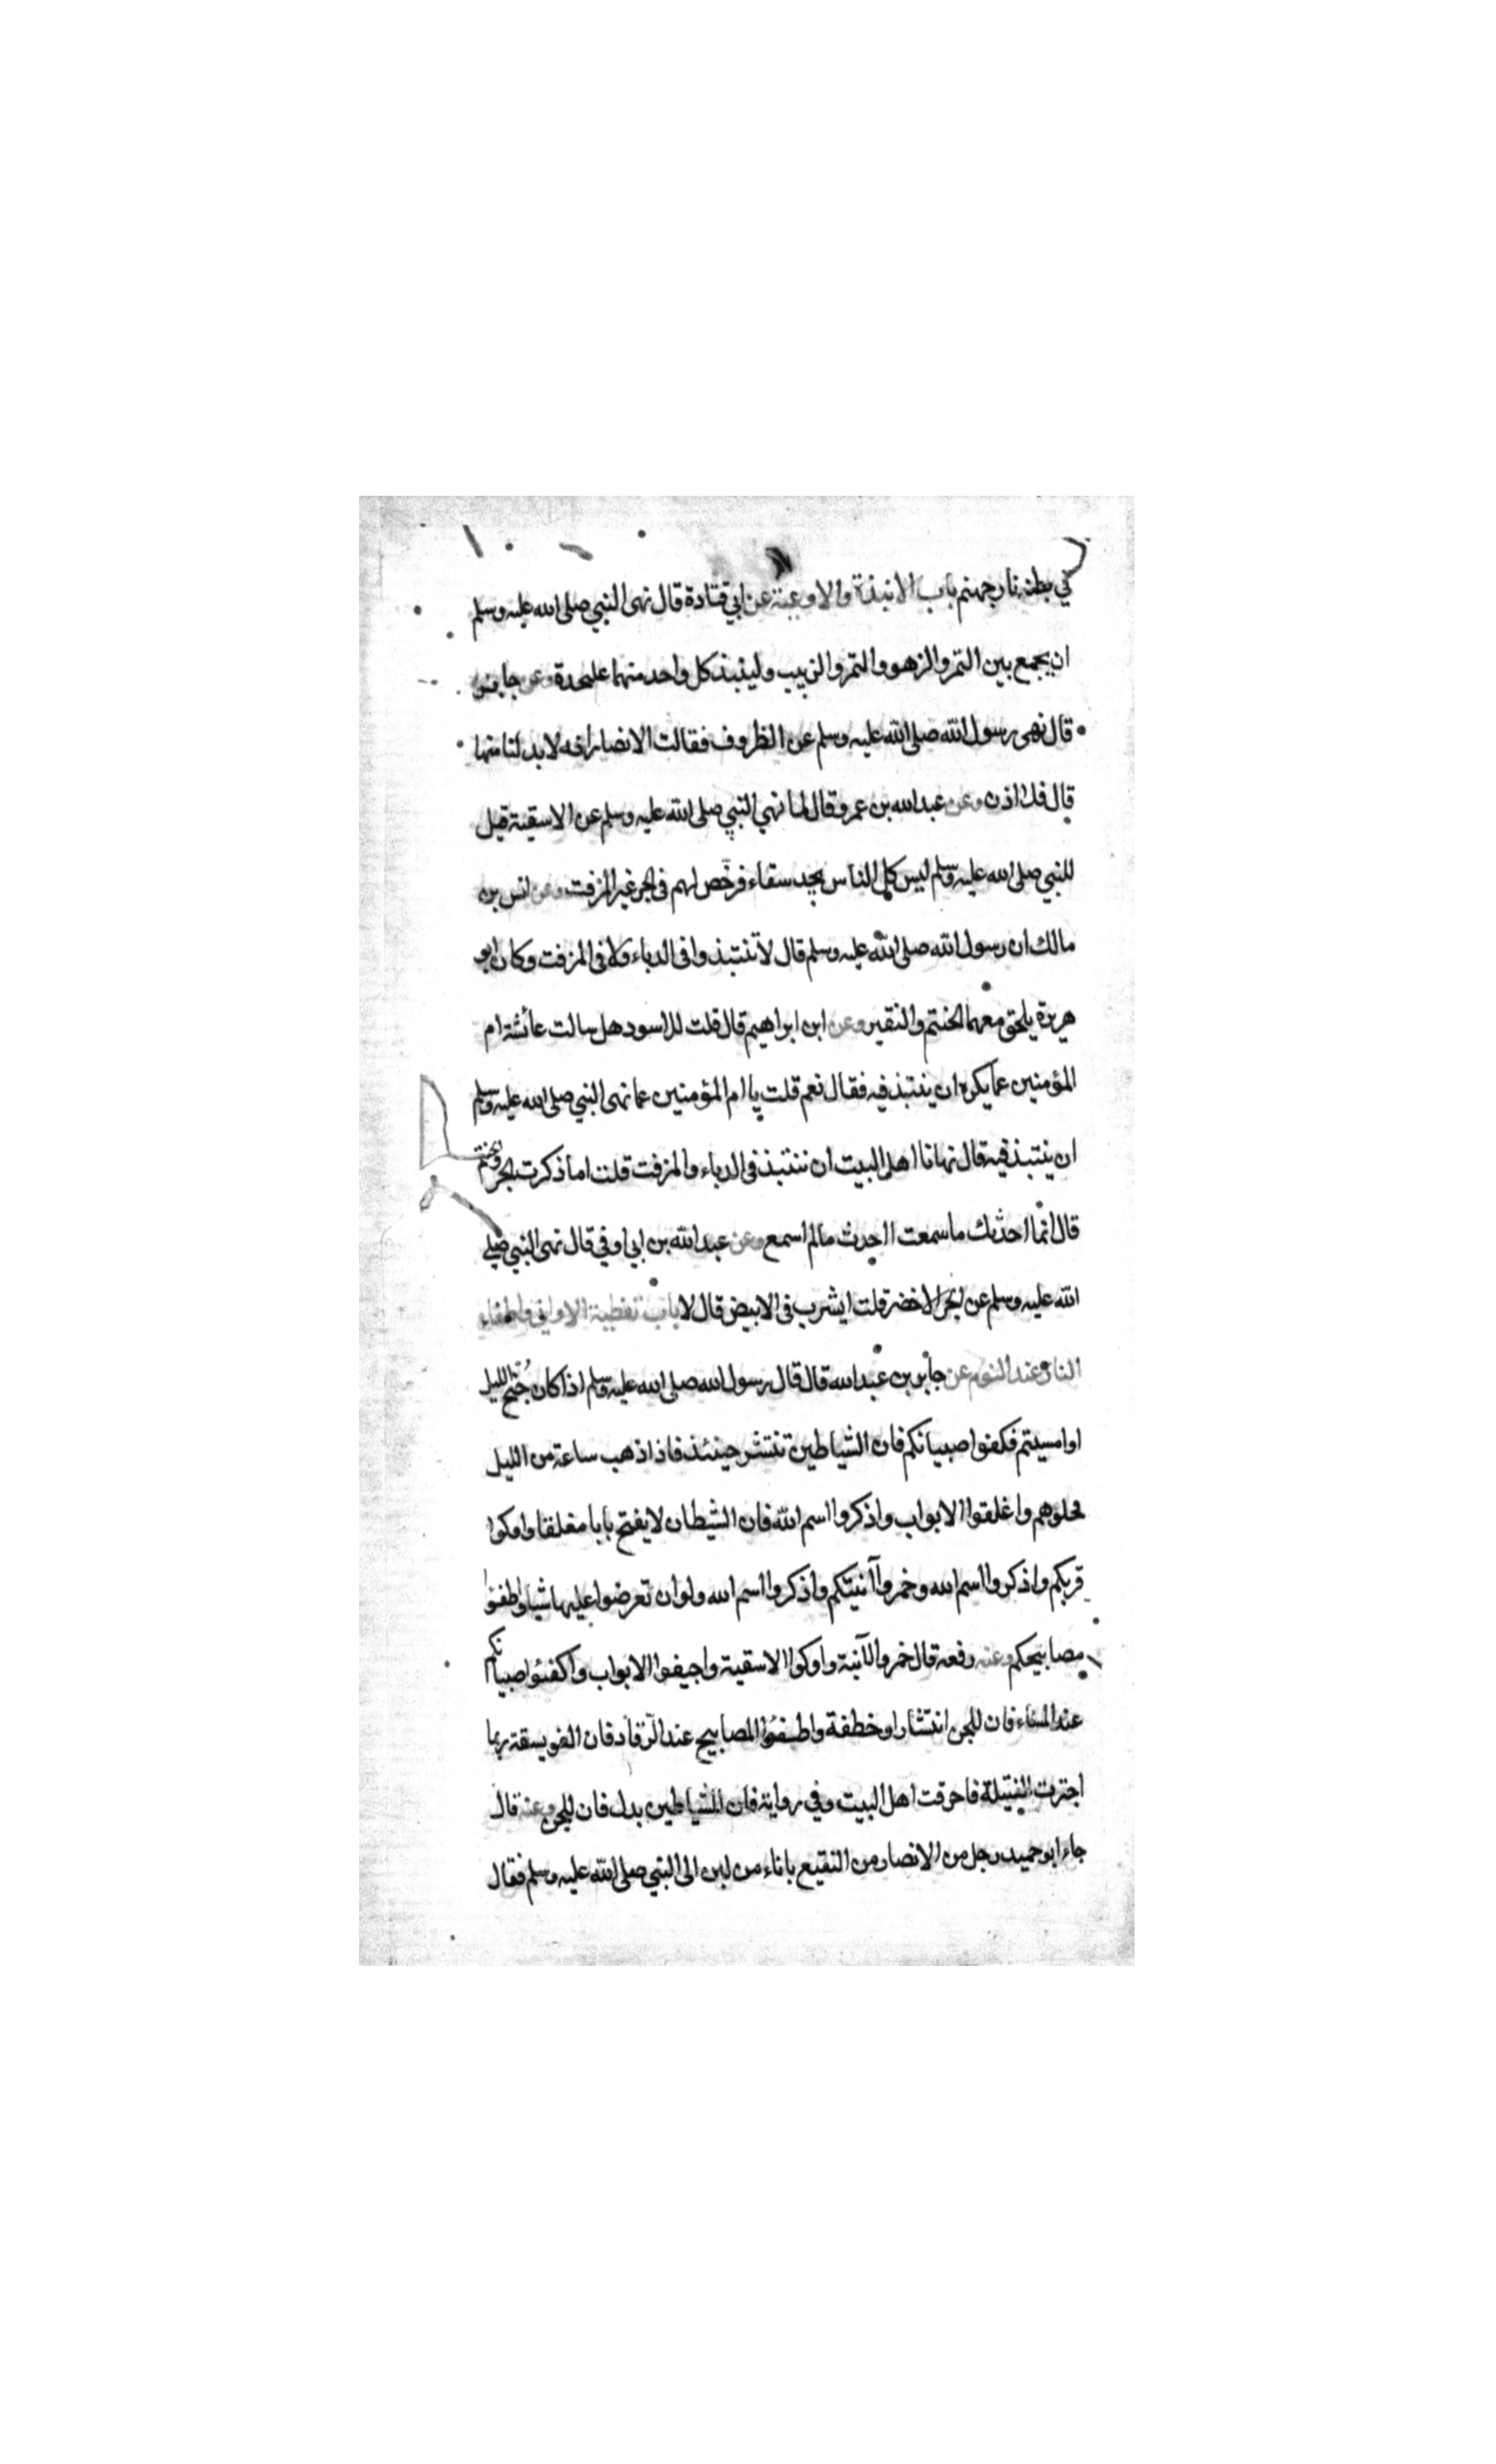 في بطنه نار جهنم باب الانبذة والاوعية عن ابي قتادة قال نهى النبي صلى الله عليه وسلم
ان يجمع بين التمر والزهو والتمر والزبيب ولينبذ كل واحد منهما علىحدة وعن جابر
قال نهى رسول الله صلى الله عليه وسلم عن الظروف فقالت الانصار انه لا بد لنا منها
قال فلا اذن وعن عبد الله بن عمرو قال لما نهى النبي صلى الله عليه وسلم عن الاسقية قيل
للنبي صلى الله عليه وسلم ليس كل الناس يجد سقاء فرخص لهم في الجر غير المزفت وعن انس بن
مالك ان رسول الله صلى الله عليه وسلم قال لا تنتبذوا في الدباء ولا في المزفت وكان ابو
هريرة يلحق معهما الحنتم والنقير وعن ابن ابراهيم قال قلت للاسود هل سالت عائشة ام
المؤمنين عما يكره ان ينتبذ فيه فقال نعم قلت يا ام المؤمنين عما نهى النبي صلى الله عليه وسلم
ان ينتبذ فيه قال نهانا اهل البيت ان ننتبذ في الدباء والمزفت قلت اما ذكرت الجر والحنتم
قال انما احدثك ما سمعت ااحدث ما لم اسمع وعن عبد الله بن ابي اوفي قال نهى النبي صلى
الله عليه وسلم عن الجر الاخضر قلت ايشرب في الابيض قال لا باب تغطية الاواني واطفاء
النار عند النوم عن جابر بن عبد الله قال قال رسول الله صلى الله عليه وسلم اذا كان جُنح الليل
او امسيتم فكفوا صبيانكم فان الشياطين تنتشر حينئذ فاذا ذهب ساعة من الليل
فحلوهم واغلقوا الابواب واذكروا اسم الله فان الشيطان لا يفتح بابا مغلقا واوكوا
قربكم واذكروا اسم الله وخمروا آنيتكم واذكروا اسم الله ولو ان تعرضوا عليها شيا واطفئوا
مصابيحكم وعنه رفعه قال خمروا الآنية واوكوا الاسقية واجيفوا الابواب واكفئوا صبيانكم
عند المساء فان للجن انتشارا وخطفة واطفئوا المصابيح عند الرقاد فان الفويسقة ربما
اجترت الفتيلة فاحرقت اهل البيت وفي رواية فان للشياطين بدل فان للجن وعنه قال
جاء ابو حميد رجل من الانصار من النقيع باناء من لبن الى النبي صلى الله عليه وسلم فقال